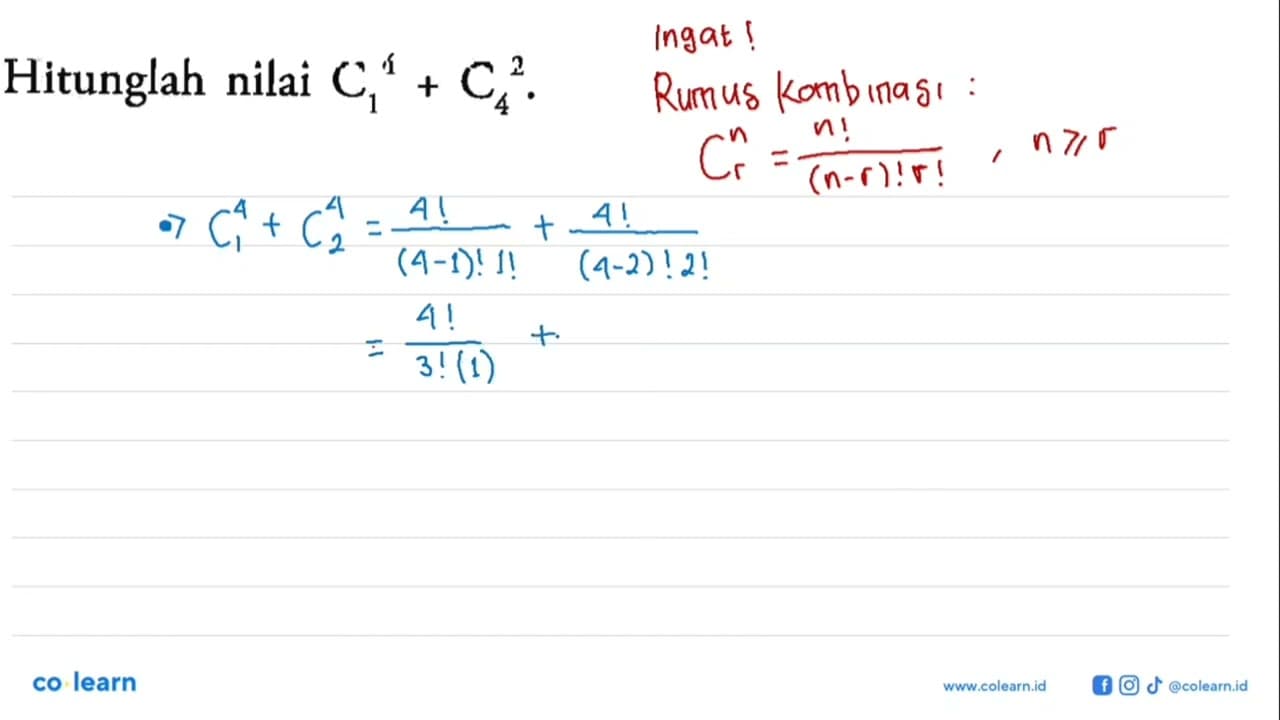 Hitunglah nilai C₁⁴ + C₄².
Ingat !
Rumus Kombinasi :
Cᵣⁿ = n! / (n-r)! r! , n ⩾ r
•⇒ C₁⁴ + C₂⁴ = 4! / (4-1)! 1! + 4! / (4-2)! 2!
= 4! / 3! (1) +
co learn
www.colearn.id @colearn.id